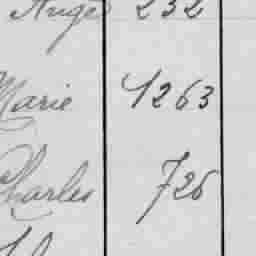 Ange 232
Marie 1263
Charles 726